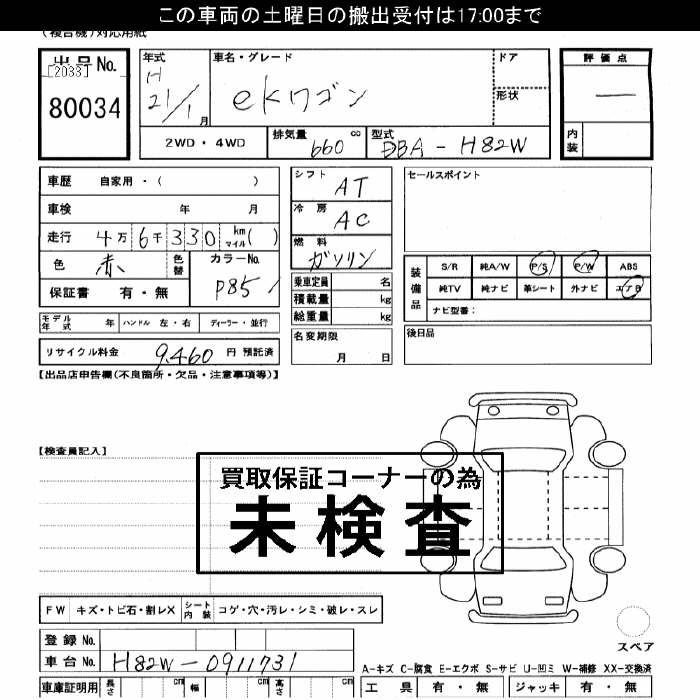 この車両の土曜日の搬出受付は17:00まで
(複合機)対応用紙
出品No.
[2033]
80034
年式
H
21/1月
車名・グレード
ekワゴン
ドア
形状
2WD・4WD
排気量 660 cc
型式 DBA-H82W
評価点
―
内装
車歴 自家用・( )
車検 年 月
走行 4万6千330 km マイル( )
色 赤 色替
カラーNo. P85
保証書 有・無
シフト AT
冷房 AC
燃料 ガソリン
乗車定員 名
積載量 kg
総重量 kg
セールスポイント
装備品
S/R 純A/W P/S P/W ABS
純TV 純ナビ 革シート 外ナビ エアB
ナビ型番:
モデル年式 年 ハンドル 左・右 ディーラー・並行
リサイクル料金 9,460 円 預託済
名変期限
月 日
後日品
【出品店申告欄(不良箇所・欠品・注意事項等)】
【検査員記入】
買取保証コーナーの為
未検査
FW キズ・トビ石・割レX シート内装 コゲ・穴・汚レ・シミ・破レ・スレ
スペア
登録No.
車台No. H82W-0911731
A-キズ C-腐食 E-エクボ S-サビ U-凹ミ W-補修 XX-交換済
車庫証明用 長さ cm 幅 cm 高さ cm
工具 有・無 ジャッキ 有・無